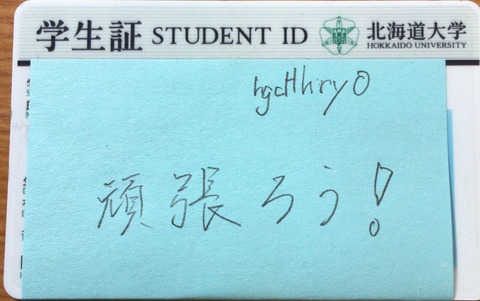 学生証 STUDENT ID 北海道大学
HOKKAIDO UNIVERSITY
頑張ろう!